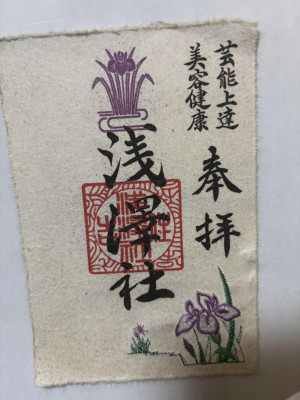 芸能上達
美容健康
奉拝
浅澤社